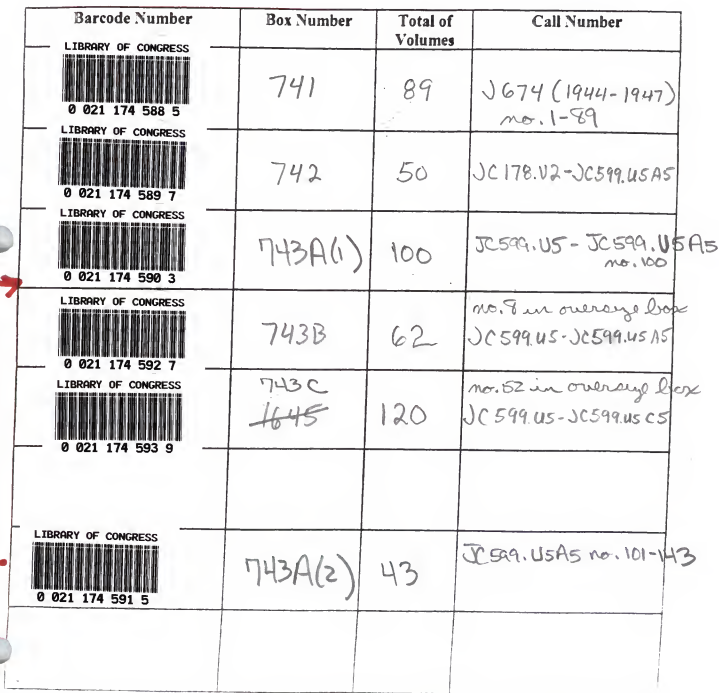 Barcode Number Box Number Total of Volumes Call Number
LIBRARY OF CONGRESS
0 021 174 588 5
741
89
J674 (1944-1947)
no. 1-89
LIBRARY OF CONGRESS
0 021 174 589 7
742
50
JC178.V2-JC599.U5A5
LIBRARY OF CONGRESS
0 021 174 590 3
743A(1)
100
JC599.U5 - JC599.U5A5
no. 100
LIBRARY OF CONGRESS
0 021 174 592 7
743B
62
no. 8 in oversize box
JC599.U5-JC599.U5A5
LIBRARY OF CONGRESS
0 021 174 593 9
743C
1645
120
no. 52 in oversize box
JC599.U5-JC599.U5C5
LIBRARY OF CONGRESS
0 021 174 591 5
743A(2)
43
JC599.U5A5 no. 101-143